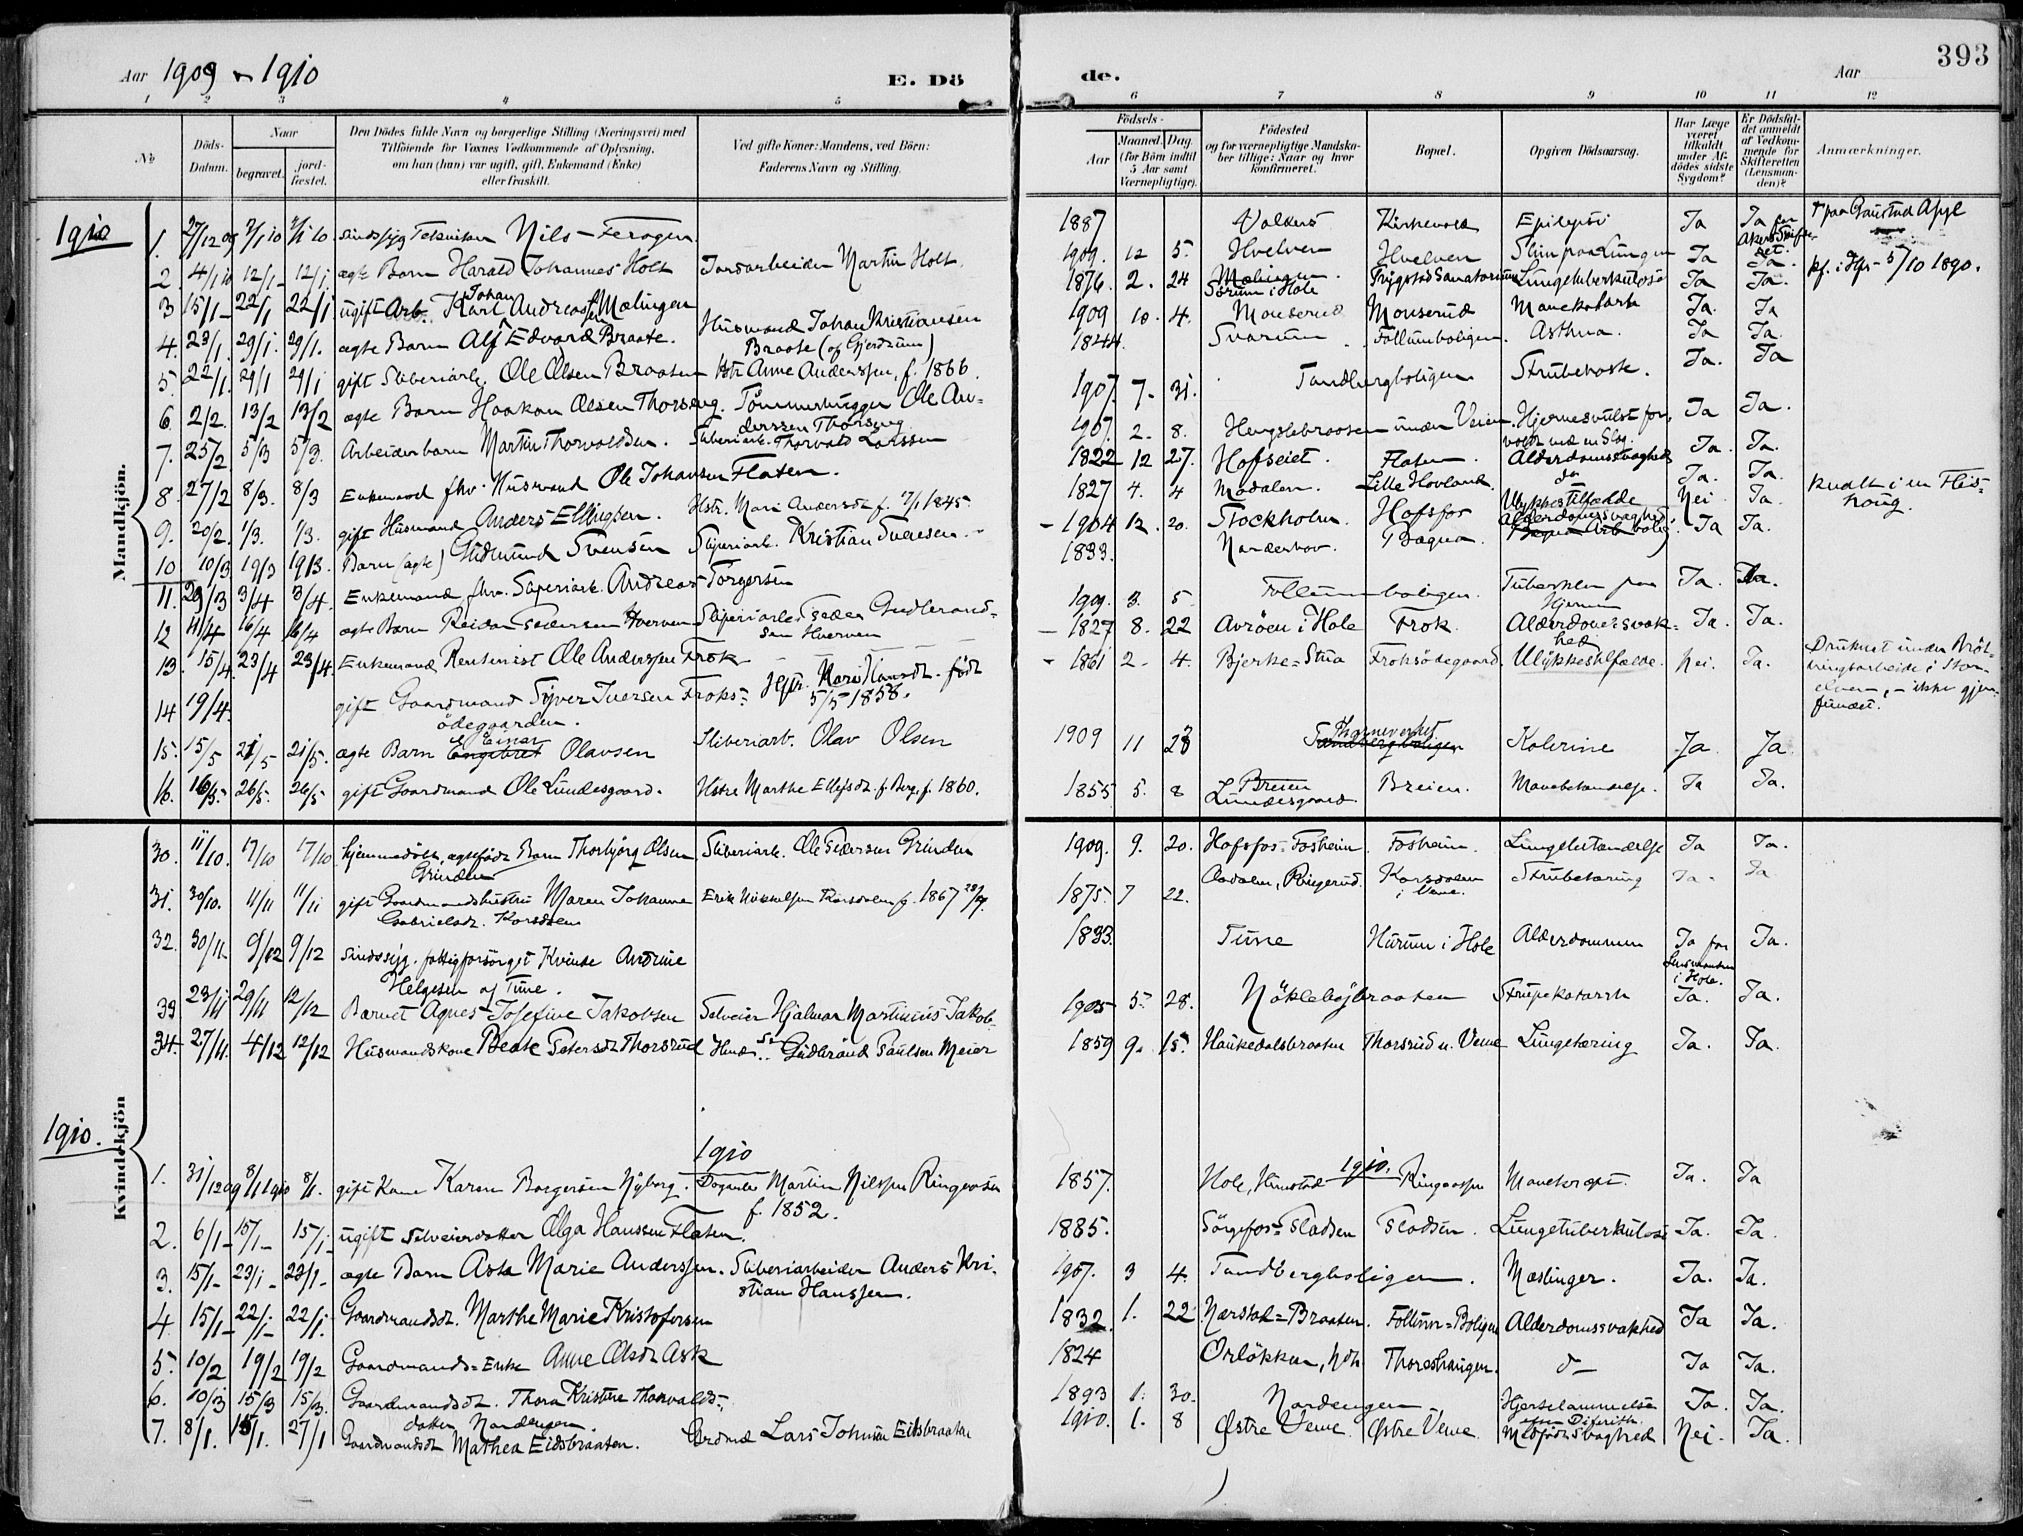 Aar 1909 - 1910
E. Dö
de.
Aar
393
1 2 3 4 5 6 7 8 9 10 11 12
No
Döds-Datum.
Naar
begravet.
jord-fæstet.
Den Dödes fulde Navn og borgerlige Stilling (Næringsvei) med
Tilföiende for Voxnes Vedkommende af Oplysning,
om han (hun) var ugift, gift, Enkemand (Enke)
eller fraskilt.
Ved gifte Koner: Mandens, ved Börn:
Faderens Navn og Stilling.
Födsels-
Aar
Maaned.
Dag.
(for Börn indtil
5 Aar samt
Værnepligtige).
Födested
og for værnepligtige Mandska-
ber tillige: Naar og hvor
konfirmeret.
Bopæl.
Opgiven Dödsaarsag.
Har Læge
været
tilkaldt
under Af-
dödes sidste
Sygdom?
Er Dödsfal-
det anmeldt
af Vedkom-
mende for
Skifteretten
(Lensman-
den)?
Anmærkninger.
1910
Mandkjön.
1. 27/12 09 7/1 10 7/1 10 sindssyg Tekniker Nils Feragen 1887 Valders Kirkevold Epilepsi Ja Ja for Akers Skifte-ret. † paa Gaustad Asyl
2. 4/1 10 12/1 12/1 ægte Barn Harald Johannes Holt Jordarbeider Martin Holt 1909. 12 5. Hvelven Hvelven Slim paa Lungen Ja Ja.
3 15/1 22/1 22/1 ugift Arb. Karl Johan Andreassen Mælingen 1876. 2. 24 Mælingen. Sörum i Hole Sanatorium Lungetuberkulose Ja Ja. kf. i Hfs - 5/10 1890.
4. 23/1. 29/1. 29/1. ægte Barn Alf Edvard Braate. Husmand Johan Kristiansen Braate (af Gjerdrum) 1909 10. 4. Monserud Monserud Mavekatarh Ja. Ja
5. 22/1. 29/1 29/1 gift Sliberiarb. Ole Olsen Braaten Hstr Anne Anderssen, f. 1866. 1844. Svarum Follumboligen. Asthma. Ja Ja.
6. 2/2. 13/2 13/2 ægte Barn Haakon Olsen Thorseng. Tömmerhugger Ole An-
derssen Thorseng 1907. 7. 31. Tandbergboligen Strubehoste. Ja. Ja
7. 25/2 5/3 5/3. Arbeiderbarn Martin Thorvaldsen. Sliberiarb. Thorvald Larssen 1907. 2. 8. Hengslebraaten under Veien. Hjernesvulst for-
voldt ved en Slag. Ja Ja.
8. 27/2 8/3. 8/3 Enkemand fhv. Husmand Ole Johansen Flaten. 1822 12 27. Hofseiet. Flaten. Alderdomssvaghed Ja. Ja.
9. 20/2. 1/3. 1/3. gift Husmand Anders Ellingsen. Hstr. Mari Andersdt. f. 1845 1827 4. 4 Modalen. Lille Hovland. do Ja. Ja.
10 10/3 19/3 19/3. Barn (ægte) Gudmund Svensen Sliperiarb. Kristian Svensen. 1904 12. 20. Stockholm. Hofsfos Ulykkestilfælde Nei Ja. knust i en Flis-
houg.
11. 29/3 3/4 3/4. Enkemand fhv. Sliperiarb. Andreas Torgersen 1833. Norderhov. Bægna Alderdomssvaghed. Bægna Arb.bolig Ja Ja.
12 11/4 16/4 16/4 ægte Barn Reidar Pedersen Hverven Sliperiarb. Peder Gudbrand-
sen Hverven 1909. 3. 5 Follumboligen. Tuberkler paa Hjernen Ja. Ja.
13. 15/4. 23/4 23/4. Enkemand Rentenist Ole Anderssen Frok 1827 8. 22 Avröen i Hole Frok. Alderdomssvak-
hed Ja. Ja.
14 19/4. gift Gaardmand Syver Iversen Froks-
ödegaarden. Hstr. Kari Hansdt. född
5/5 1858. 1861 2. 4. Bjerke-Stua Froksödegaard. Ulykkestilfælde. Nei. Ja. Druknet under Bröt-
ningsarbeide i Stor-
elven, - ikke gjen-
fundet.
15. 15/5 21/5 21/5. ægte Barn Engebret Einar Olavsen Sliberiarb. Olav Olsen 1909 11 23 Tandbergboligen Kolerine Ja Ja
16. 16/5. 26/5. 26/5 gift Gaardmand Ole Lundesgaard. Hstre Marthe Ellefsdt. f. Berg, f. 1860. 1855 5. 8 Breien
Lundesgaard. Breien. Mavebetændelse. Ja Ja.
Kvindekjön
30. 11/10. 17/10 17/10 hjemmedöbt, ægtefödt Barn Thorbjörg Olsen
Grinden Sliberiarb. Ole Pedersen Grinden 1909. 9. 20. Hofsfos-Fosheim Fosheim. Lungebetændelse Ja Ja.
31. 30/10. 11/11 11/11 gift Gaardmandshustru Maren Johanne
Gabrielsdt. Korsdalen Erik Mikkelsen Korsdalen f. 1867 1875. 7 22. Aadalen, Ringerud. Korsdalen i Veme. Strubetæring Ja. Ja
32. 30/11. 9/12 9/12 Sindssyg. fattigforsörget Kvinde Andrine
Helgesen af Tune. 1833. Tune Hurum i Hole Alderdommen Ja for Lensmanden i Hole. Ja.
33 23/11 29/11 12/12 Barnet Agnes Josefine Jakobsen Selveier Hjalmar Martinius Jakob-
sen 1905 5. 28. Nöklebyebraaten Strupekatarrh Ja. Ja.
34. 27/11. 4/12 12/12 Husmandskone Beate Petersdt Thorsrud Husm. Gudbrand Paulsen Meier 1859 9. 15. Haukedalsbraaten Thorsrud u. Veme Lungetæring Ja. Ja.
1910.
1910
1910.
1. 31/12 09 8/1 1910 8/1. gift Kone Karen Borgersen Nyborg. Martin Nilssen Ringaasen
f. 1852. 1857. Hole, Ringaasen Mavekræft. Ja. Ja
2. 6/1 15/1 15/1 ugift Selveierdatter Olga Hanssen Flaten. 1885. Sörgefos-Pladsen Pladsen. Lungetuberkulose Ja. Ja.
3. 15/1 23/1 23/1 ægte Barn Asta Marie Anderssen. Sliberiarbeider Anders Kri-
stian Hanssen. 1907. 3 4. Tandbergboligen. Mæslinger. Ja. Ja.
4. 15/1 22/1 22/1. Gaardmandsdt. Marthe Marie Kristofersen 1832. 1. 22 Nærstad-Braaten. Follum-Boligen Alderdomssvakhed Ja Ja.
5. 10/2 19/2 19/2 Gaardmands-Enke Anne Olsdt Ask 1824 Orlökken, Ndh. Thoreshaugen. do Ja Ja.
6. 10/3 15/3 15/3. Gaardmandsdt. Thora Kristine Thorvalds-
datter Nordengen 1893 1. 30. Nordengen Hjertelammelse
efter Difterith. Ja. Ja.
7. 8/1. 15/1. 27/1 Gaardmandsdt Mathea Eidsbraaten. Grdmd Lars Johnsen Eidsbraaten 1910. 1. 8 Østre Veme. Østre Veme. Medfödt Svaghed Nei. Ja.